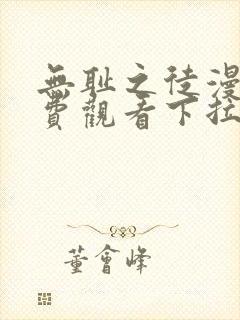 無耻之徒漫
費觀看下拉
董會峰